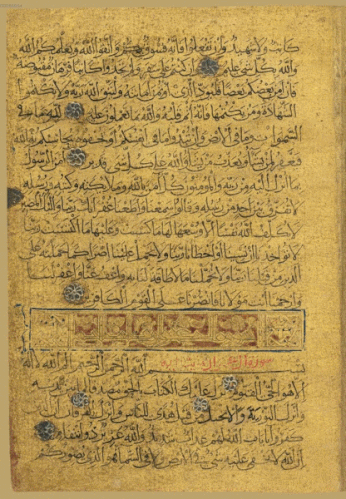 كاتب ولا شهيد وإن تفعلوا فإنه فسوق بكم واتقوا الله ويعلمكم الله
والله بكل شيء عليم وإن كنتم على سفر ولم تجدوا كاتبا فرهان مقبوضة
فإن أمن بعضكم بعضا فليؤد الذي اؤتمن أمانته وليتق الله ربه ولا تكتموا
الشهادة ومن يكتمها فإنه آثم قلبه والله بما تعملون عليم لله ما في
السموات وما في الأرض وإن تبدوا ما في أنفسكم أو تخفوه يحاسبكم به الله
فيغفر لمن يشاء ويعذب من يشاء والله على كل شيء قدير آمن الرسول
بما أنزل إليه من ربه والمؤمنون كل آمن بالله وملائكته وكتبه ورسله
لا نفرق بين أحد من رسله وقالوا سمعنا وأطعنا غفرانك ربنا وإليك المصير
لا يكلف الله نفسا إلا وسعها لها ما كسبت وعليها ما اكتسبت ربنا
لا تؤاخذنا إن نسينا أو أخطأنا ربنا ولا تحمل علينا إصرا كما حملته على
الذين من قبلنا ربنا ولا تحملنا ما لا طاقة لنا به واعف عنا واغفر لنا
وارحمنا أنت مولانا فانصرنا على القوم الكافرين
بسم الله الرحمن الرحيم الم الله لا إله
إلا هو الحي القيوم نزل عليك الكتاب بالحق مصدقا لما بين يديه
وأنزل التورية والإنجيل من قبل هدى للناس وأنزل الفرقان إن الذين
كفروا بآيات الله لهم عذاب شديد والله عزيز ذو انتقام
إن الله لا يخفى عليه شيء في الأرض ولا في السماء هو الذي يصوركم